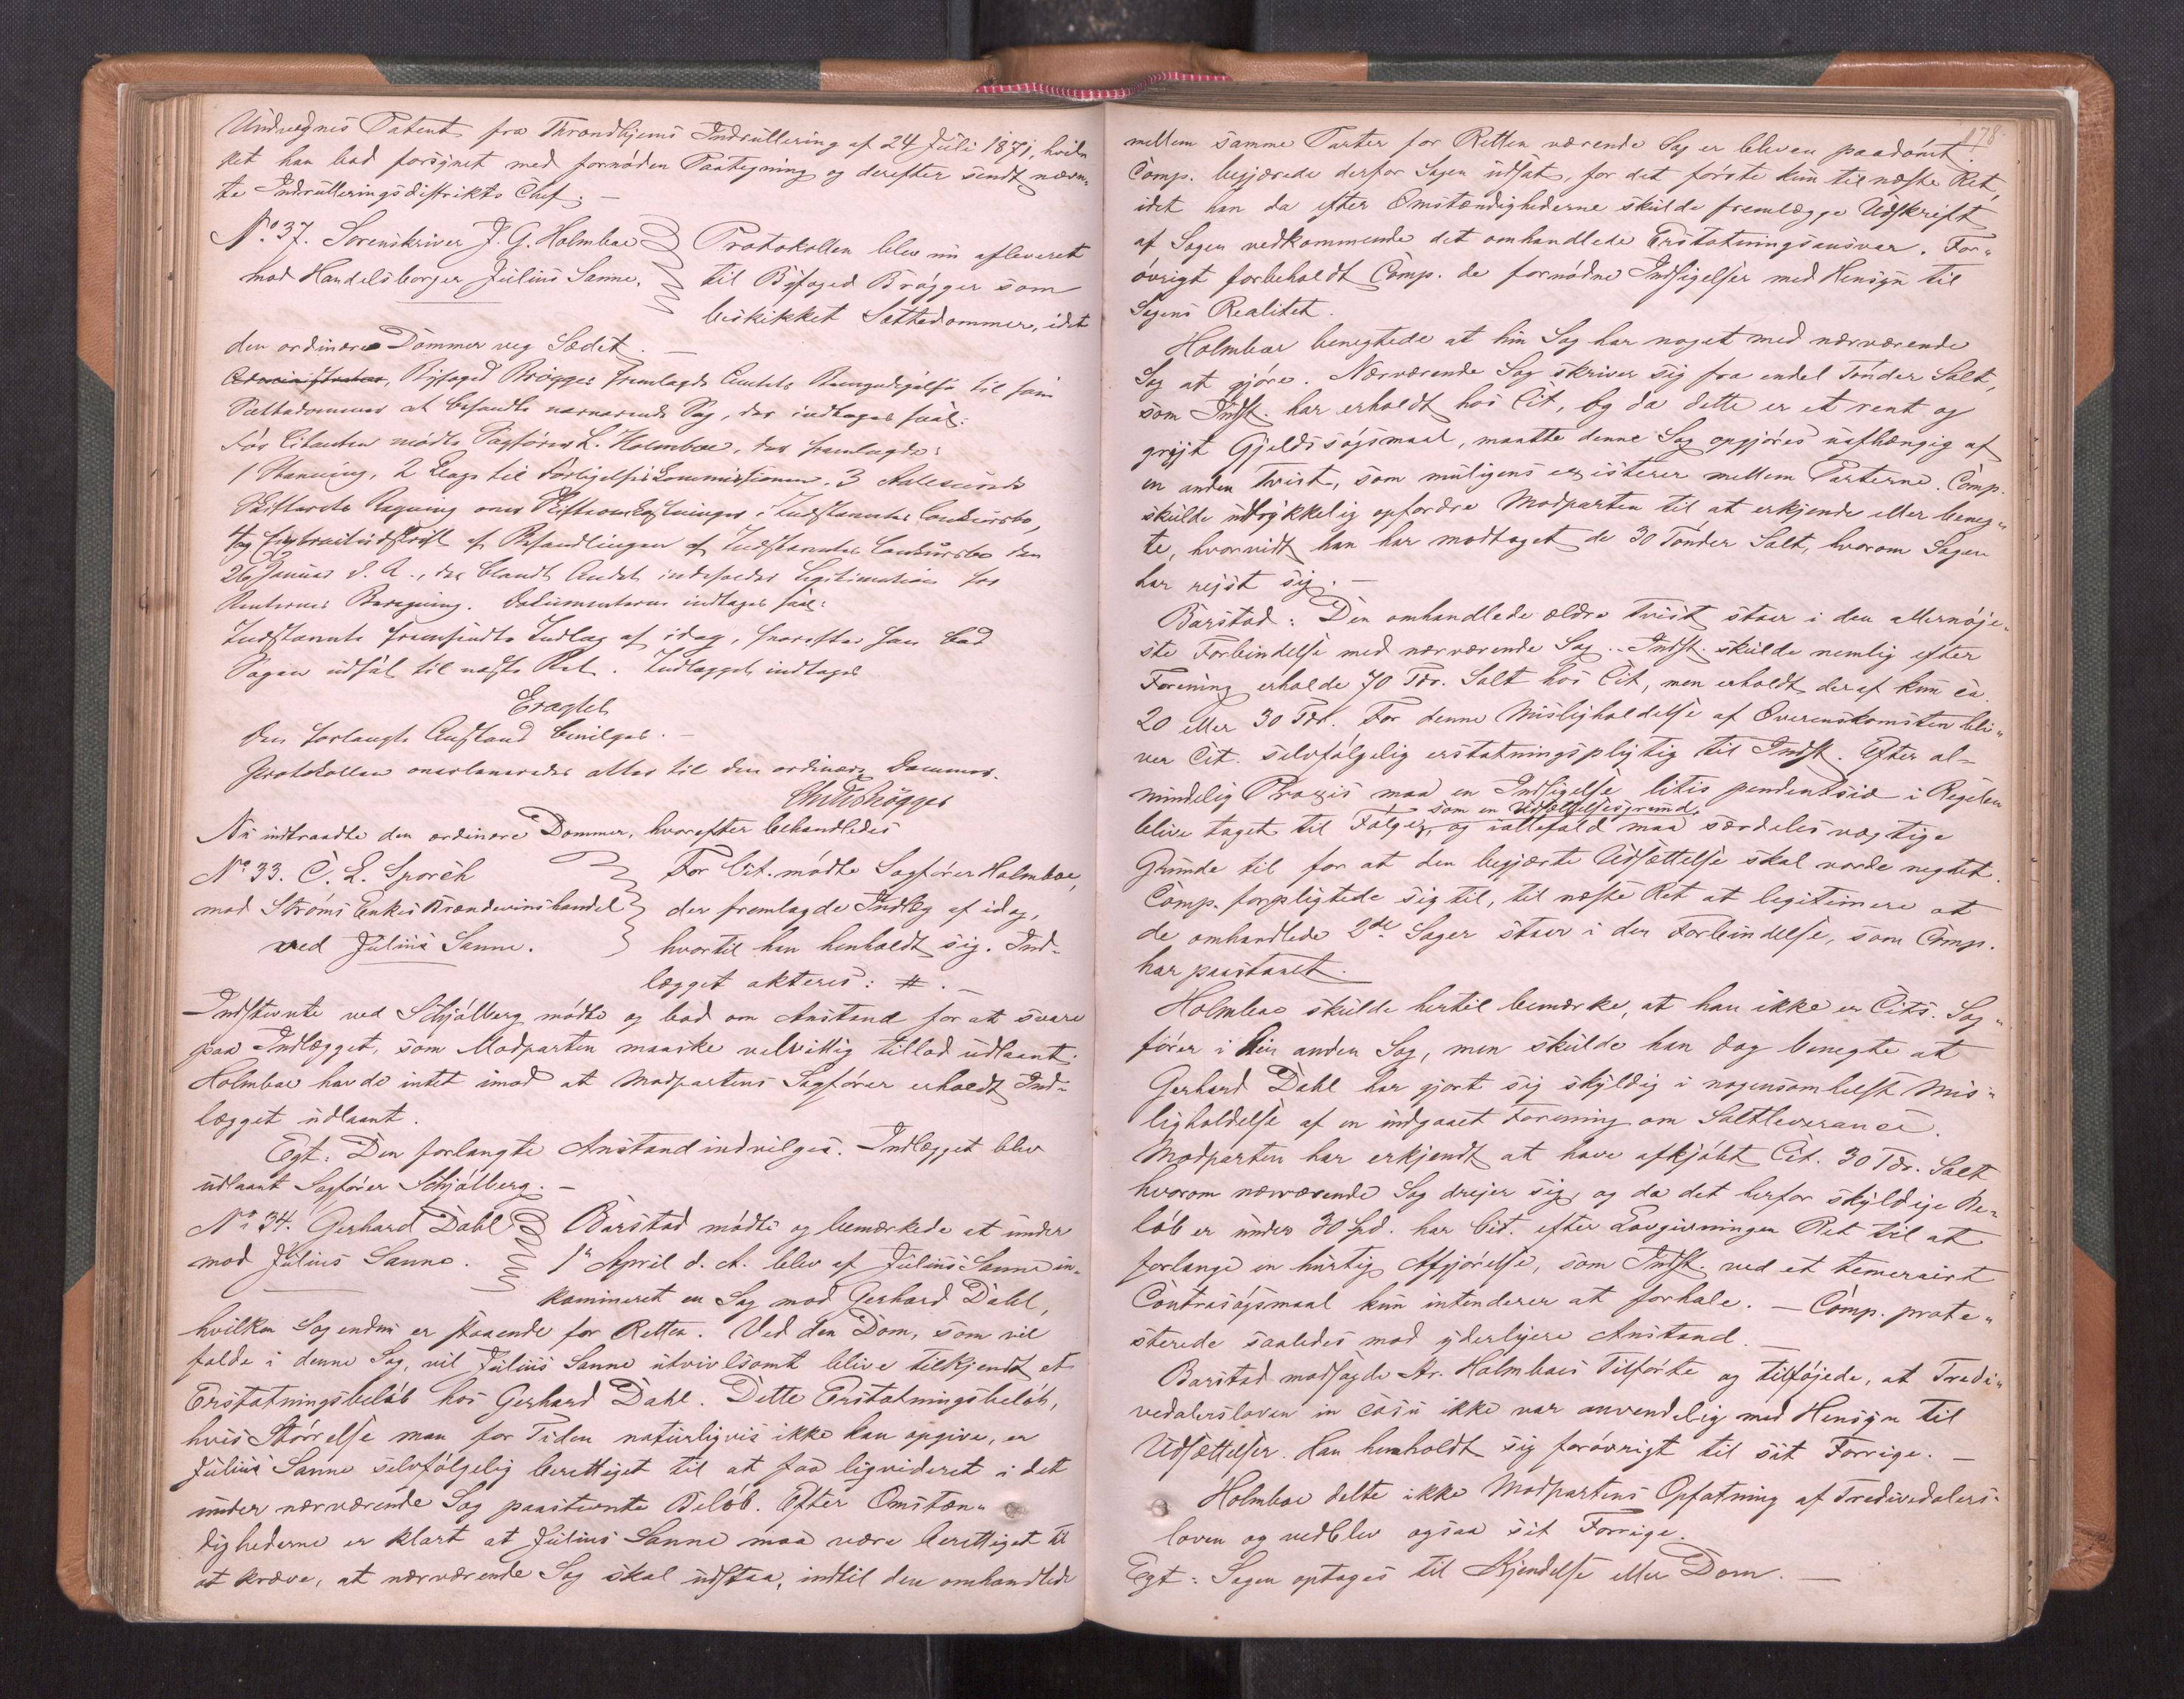 Undvegnes Patent fra Throndhjems Indrullering af 24 Juli 1871, hvil-
ket han bad forsynet med fornøden Paategning og derefter sendt nævn-
te Indrulleringsdistrikts Chef. —
No. 37. Sorenskriver J. G. Holmboe
mod Handelsborger Julius Sanne.
Protokollen blev nu afleveret
til Byfoged Brøgger som
beskikket Sættedommer, idet
den ordinære Dommer veg Sædet. —
Byfoged Brøgger fremlagde Amtets Bemyndigelse til som
Sættedommer at behandle nærværende Sag, der indtages saal:
For Citanten mødte Sagfører L. Holmboe, der fremlagde:
1 Stævning, 2 Klage til Forligelseskommissionen, 3 Aalesunds
Skifterets Regning over Skifteomkostninger i Indstævntes Concursbo,
4 Extraktudskrift af Behandlingen af Indstævntes Concursbo den
26 Januar d. A., der blandt Andet indeholder Legitimation for
Renternes Beregning. Dokumenterne indtages saal:
Indstævnte fremsendte Indlæg af idag, hvorefter han bad
Sagen udsat til næste Ret. Indlægget indtages
Eragtet
Den forlangte Anstand bevilges. —
Protokollen overleveredes atter til den ordinære Dommer.
Brøgger
Nu indtraadte den ordinære Dommer, hvorefter behandledes
No. 33. C. L. Sporch
mod Strøms Enkes Brændevinshandel
ved Julius Sanne.
For Cit. mødte Sagfører Holmboe,
der fremlagde Indlæg af idag,
hvortil han henholdt sig. Ind-
lægget akteres: #. —
Indstævnte ved Schjølberg mødte og bad om Anstand for at svare
paa Indlægget, som Modparten maaske velvillig tillod udlaant.
Holmboe havde intet imod at Modpartens Sagfører erholdt Ind-
lægget udlaant.
Egt: Den forlangte Anstand indvilges. Indlægget blev
udlaant Sagfører Schjølberg. —
No. 34. Gerhard Dahl
mod Julius Sanne.
Barstad mødte og bemærkede at under
1ste April d. A. blev af Julius Sanne in-
kamineret en Sag mod Gerhard Dahl,
hvilken Sag endnu er staaende for Retten. Ved den Dom, som vil
falde i denne Sag, vil Julius Sanne utvivlsomt blive tilkjendt et
Erstatningsbeløb hos Gerhard Dahl. Dette Erstatningsbeløb,
hvis Størrelse man for Tiden naturligvis ikke kan opgive, er
Julius Sanne selvfølgelig berettiget til at faa liqvideret i det
under nærværende Sag paastævnte Beløb. Efter Omstæn-
dighederne er klart at Julius Sanne maa være berettiget til
at kræve, at nærværende Sag skal udstaa, indtil den omhandlede
178.
mellem samme Parter for Retten værende Sag er bleven paadømt.
Comp. begjærede derfor Sagen udsat, for det første kun til næste Ret,
idet han da efter Omstændighederne skulde fremlægge Udskrift
af Sagen vedkommende det omhandlede Erstatningsansvar. For-
øvrigt forbeholdt Comp. de fornødne Indsigelser med Hensyn til
Sagens Realitet.
Holmboe benegtede at hin Sag har noget med nærværende
Sag at gjøre. Nærværende Sag skriver sig fra endel Tønder Salt,
som Indst. har erholdt hos Cit, og da dette er et rent og
grejt Gjeldssøgsmaal, maatte denne Sag opgjøres uafhængig af
en anden Tvist, som muligens existerer mellem Parterne. Comp.
skulde udtrykkelig opfordre Modparten til at erkjende eller beneg-
te, hvorvidt han har modtaget de 30 Tønder Salt, hvorom Sagen
har rejst sig. —
Barstad: Den omhandlede ældre Tvist staar i den allernøje-
ste Forbindelse med nærværende Sag. Indst. skulde nemlig efter
Forening erholde 70 Tdr. Salt hos Cit, men erholdt deraf kun ca
20 eller 30 Tdr. For denne Misligholdelse af Overenskomsten bli-
ver Cit. selvfølgelig erstatningspligtig til Indst. Efter al-
mindelig Praxis maa en Indsigelse litis pendentsiæ i Regelen
som en Udsættelsesgrund,
blive taget til Følge, og iallefald maa særdeles vægtige
Grunde til for at den begjærte Udsættelse skal vorde negtet.
Comp. forpligtede sig til, til næste Ret at legitimere at
de omhandlede 2de Sager staar i den Forbindelse, som Comp.
har paastaaet.
Holmboe skulde hertil bemærke, at han ikke er Cits. Sag-
fører i hin anden Sag, men skulde han dog benegte at
Gerhard Dahl har gjort sig skyldig i nogensomhelst Mis-
ligholdelse af en indgaaet Forening om Saltleverance.
Modparten har erkjendt at have afkjøbt Cit. 30 Tdr. Salt
hvorom nærværende Sag drejer sig, og da det herfor skyldige Be-
løb er under 30 Spd. har Cit. efter Lovgivningen Ret til at
forlange en hurtig Afgjørelse, som Indst. ved et temerairt
Contrasøgsmaal kun intenderer at forhale. — Comp. prote-
sterede saaledes mod yderligere Anstand. —
Barstad modsagde Hr. Holmboes Tilførte og tilføjede, at Tredi-
vedalersloven in casu ikke var anvendelig med Hensyn til
Udsættelser. Han henholdt sig forøvrigt til sit Forrige. —
Holmboe delte ikke Modpartens Opfatning af Tredivedalers-
loven og vedblev ogsaa sit Forrige.
Egt: Sagen optages til Kjendelse eller Dom. —